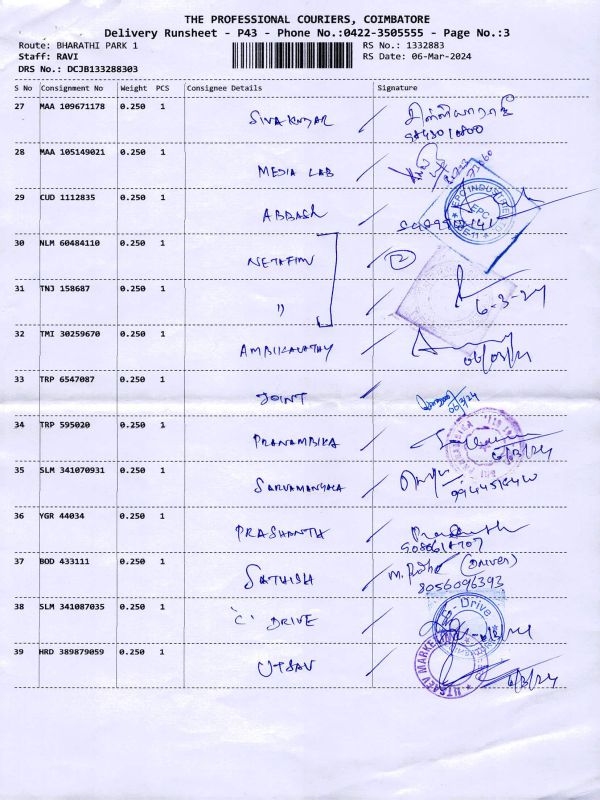 THE PROFESSIONAL COURIERS, COIMBATORE
Delivery Runsheet - P43 - Phone No.:0422-3505555 - Page No.:3
Route: BHARATHI PARK 1 RS No.: 1332883
Staff: RAVI RS Date: 06-Mar-2024
DRS No.: DCJB133288303
S No Consignment No Weight PCS Consignee Details Signature
27 MAA 109671178 0.250 1 SIVAKUMAR
28 MAA 105149021 0.250 1 MEDIA LAB
29 CUD 1112835 0.250 1 ABBASH
EPC
30 NLM 60484110 0.250 1 NETAFIM 2
31 TNJ 158687 0.250 1 " 6-3-24
32 TMI 30259670 0.250 1 AMBIKAVATHY
33 TRP 6547087 0.250 1 JOINT 06/3/24
34 TRP 595020 0.250 1 PRANAMBIKA 6/3/24
35 SLM 341070931 0.250 1 SARVAMANGALA
36 YGR 44034 0.250 1 PRASHANTH Prashanth
37 BOD 433111 0.250 1 SATHISH (DRIVER)
8056096393
38 SLM 341087035 0.250 1 'C' DRIVE C - Drive
39 HRD 389879059 0.250 1 UTSAV 6/3/24